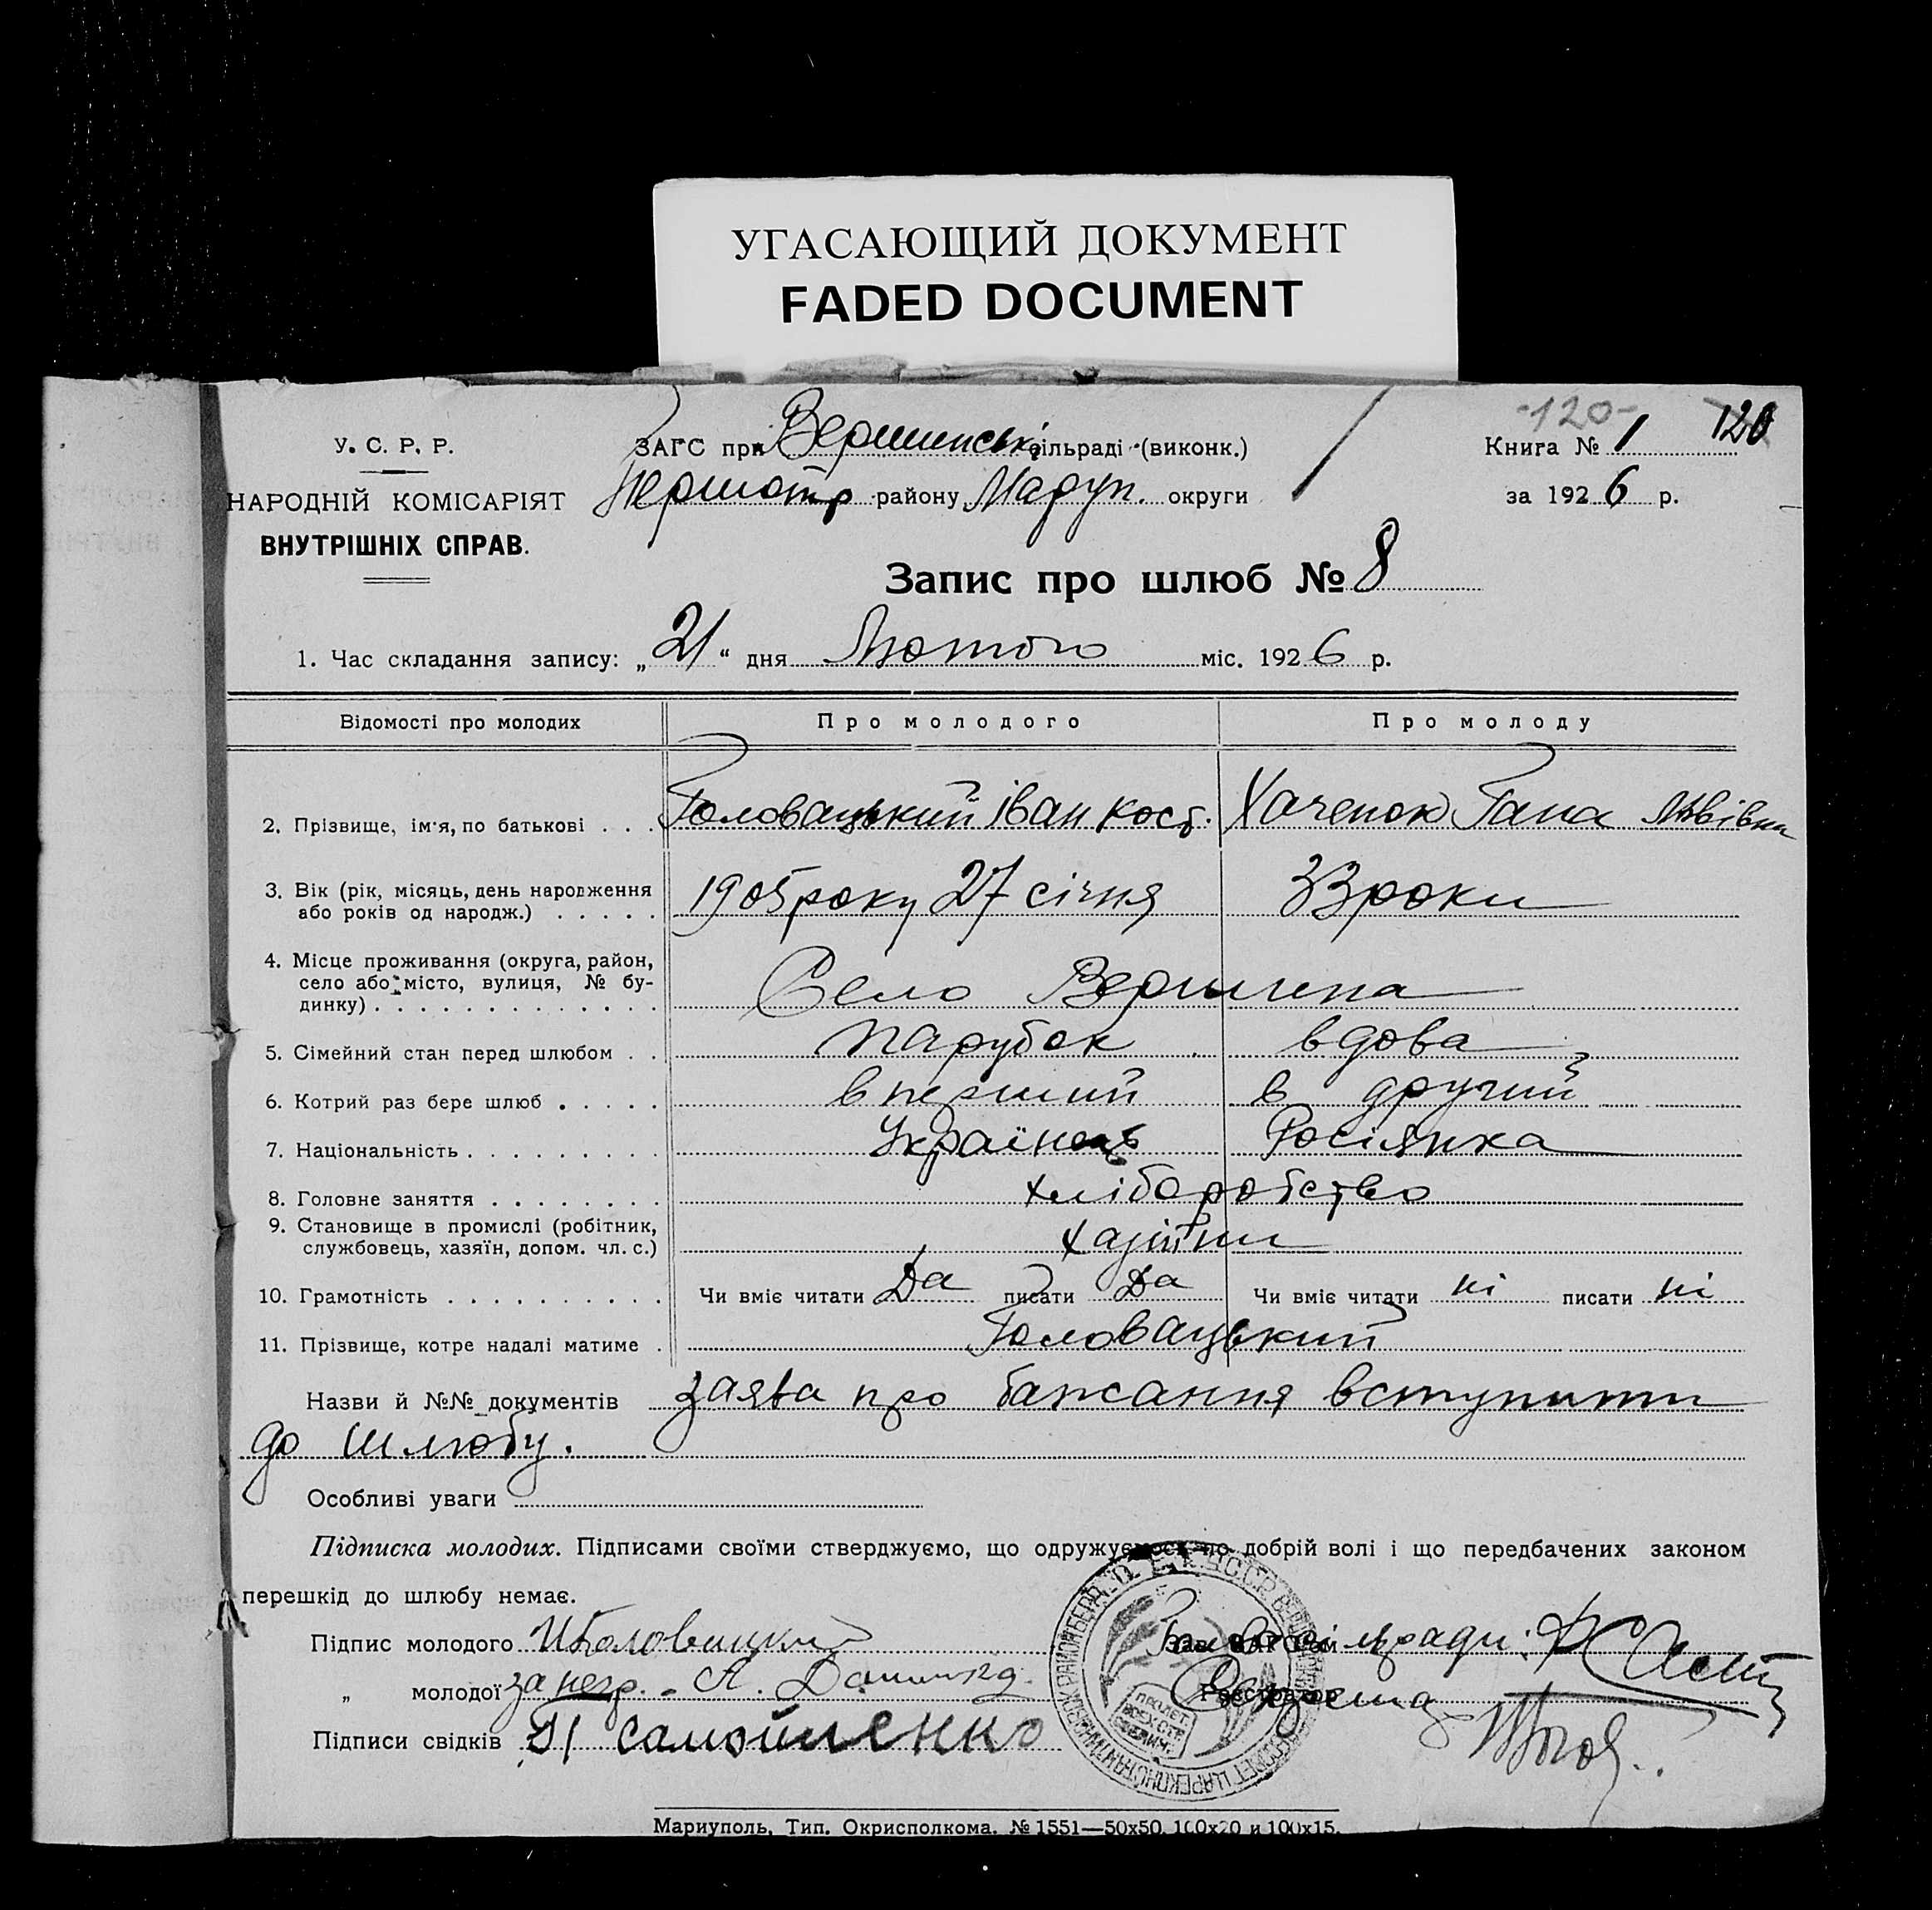 УГАСАЮЩИЙ ДОКУМЕНТ
FADED DOCUMENT
-120- 120
У. С. Р. Р.
НАРОДНІЙ КОМІСАРІЯТ
ВНУТРІШНІХ СПРАВ.
ЗАГС при Вершинські сільраді (виконк.)
району Маруп. округи
Книга № 1
за 1926 р.
Запис про шлюб № 8
1. Час складання запису: „21“ дня Лютого міс. 1926 р.
Відомості про молодих Про молодого Про молоду
2. Прізвище, ім'я, по батькові . . . Головацький Іван Кост. Хаченок Гана Львівна
3. Вік (рік, місяць, день народження
або років од народж.) . . . . . 1905 року 27 січня 33 роки
4. Місце проживання (округа, район,
село або місто, вулиця, № бу-
динку) . . . . . . . . . . . . . Село Вершина
5. Сімейний стан перед шлюбом . . парубок вдова
6. Котрий раз бере шлюб . . . . . в перший в другий
7. Національність . . . . . . . . . Українець Росіянка
8. Головне заняття . . . . . . . . хліборобство
9. Становище в промислі (робітник,
службовець, хазяїн, допом. чл. с.)
10. Грамотність . . . . . . . . . . Чи вміє читати Да писати Да Чи вміє читати ні писати ні
11. Прізвище, котре надалі матиме . Головацький
Назви й №№ документів заява про бажання вступити
до шлюбу.
Особливі уваги
Підписка молодих. Підписами своїми стверджуємо, що одружуємось по добрій волі і що передбачених законом
перешкід до шлюбу немає.
Підпис молодого И Головацкий Зав. ЗАГС'ом
„ молодої за негр. А. Реєстратор
Підписи свідків П Самойленко
Мариуполь, Тип. Окрисполкома. № 1551—50х50, 100х20 и 100х15.